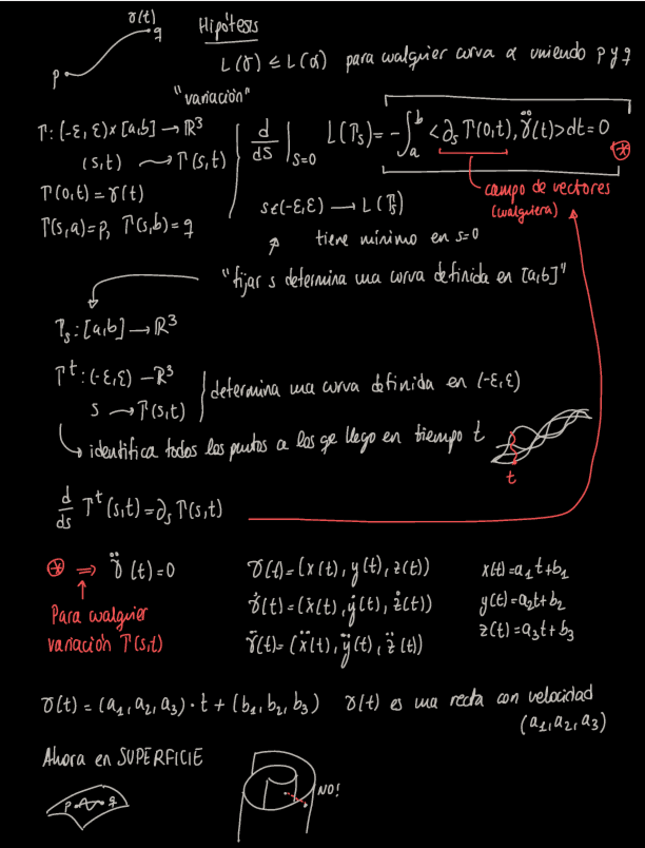 γ(t)
Hipótesis
p
q
L(γ) ≤ L(α) para cualquier curva α uniendo p y q
"variación"
Γ: (-ε, ε)×[a,b] → ℝ³
(s,t) ⟿ Γ(s,t)
Γ(0,t) = γ(t)
Γ(s,a)=p, Γ(s,b)=q
d/ds |s=0 L(Γs) = - ∫ₐᵇ <∂s Γ(0,t), γ̈(t)> dt = 0
⊛
campo de vectores
(cualquiera)
s∈(-ε,ε) → L(Γs)
tiene mínimo en s=0
"fijar s determina una curva definida en [a,b]"
Γs: [a,b] → ℝ³
Γᵗ: (-ε,ε) – ℝ³
s → Γ(s,t)
determina una curva definida en (-ε,ε)
identifica todos los puntos a los qe llego en tiempo t
t
d/ds Γᵗ(s,t) = ∂s Γ(s,t)
⊛ ⇒ γ̈(t)=0
Para cualquier
variación Γ(s,t)
γ(t)=(x(t), y(t), z(t))
γ̇(t)=(ẋ(t), ẏ(t), ż(t))
γ̈(t)=(ẍ(t), ÿ(t), z̈(t))
x(t)=a₁t+b₁
y(t)=a₂t+b₂
z(t)=a₃t+b₃
γ(t) = (a₁, a₂, a₃)·t + (b₁, b₂, b₃) γ(t) es una recta con velocidad
(a₁, a₂, a₃)
Ahora en SUPERFICIE
p q
NO!